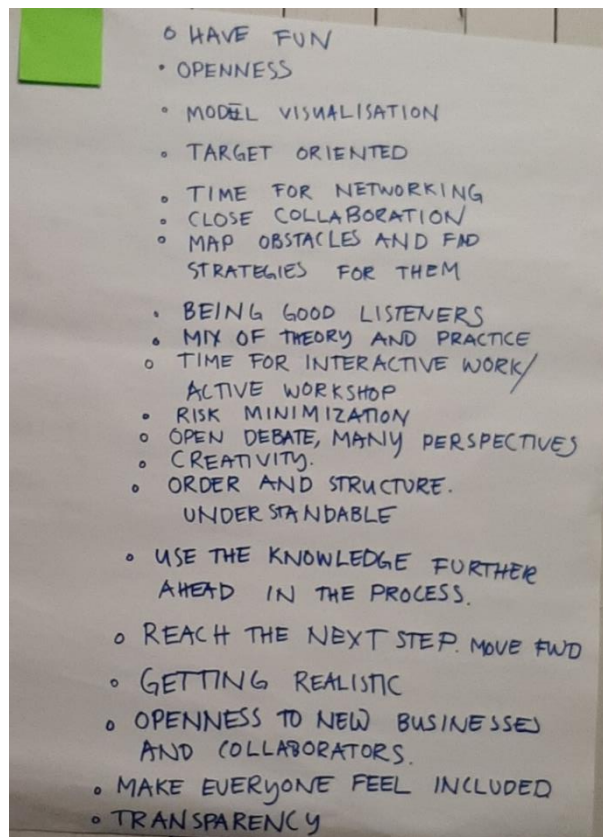 o HAVE FUN
• OPENNESS
• MODEL VISUALISATION
• TARGET ORIENTED
• TIME FOR NETWORKING
• CLOSE COLLABORATION
• MAP OBSTACLES AND FND
STRATEGIES FOR THEM
• BEING GOOD LISTENERS
• MIX OF THEORY AND PRACTICE
o TIME FOR INTERACTIVE WORK/
ACTIVE WORKSHOP
• RISK MINIMIZATION
o OPEN DEBATE, MANY PERSPECTIVES
• CREATIVITY.
• ORDER AND STRUCTURE.
UNDERSTANDABLE
• USE THE KNOWLEDGE FURTHER
AHEAD IN THE PROCESS.
o REACH THE NEXT STEP. MOVE FWD
• GETTING REALISTIC
• OPENNESS TO NEW BUSINESSES
AND COLLABORATORS.
• MAKE EVERYONE FEEL INCLUDED
• TRANSPARENCY